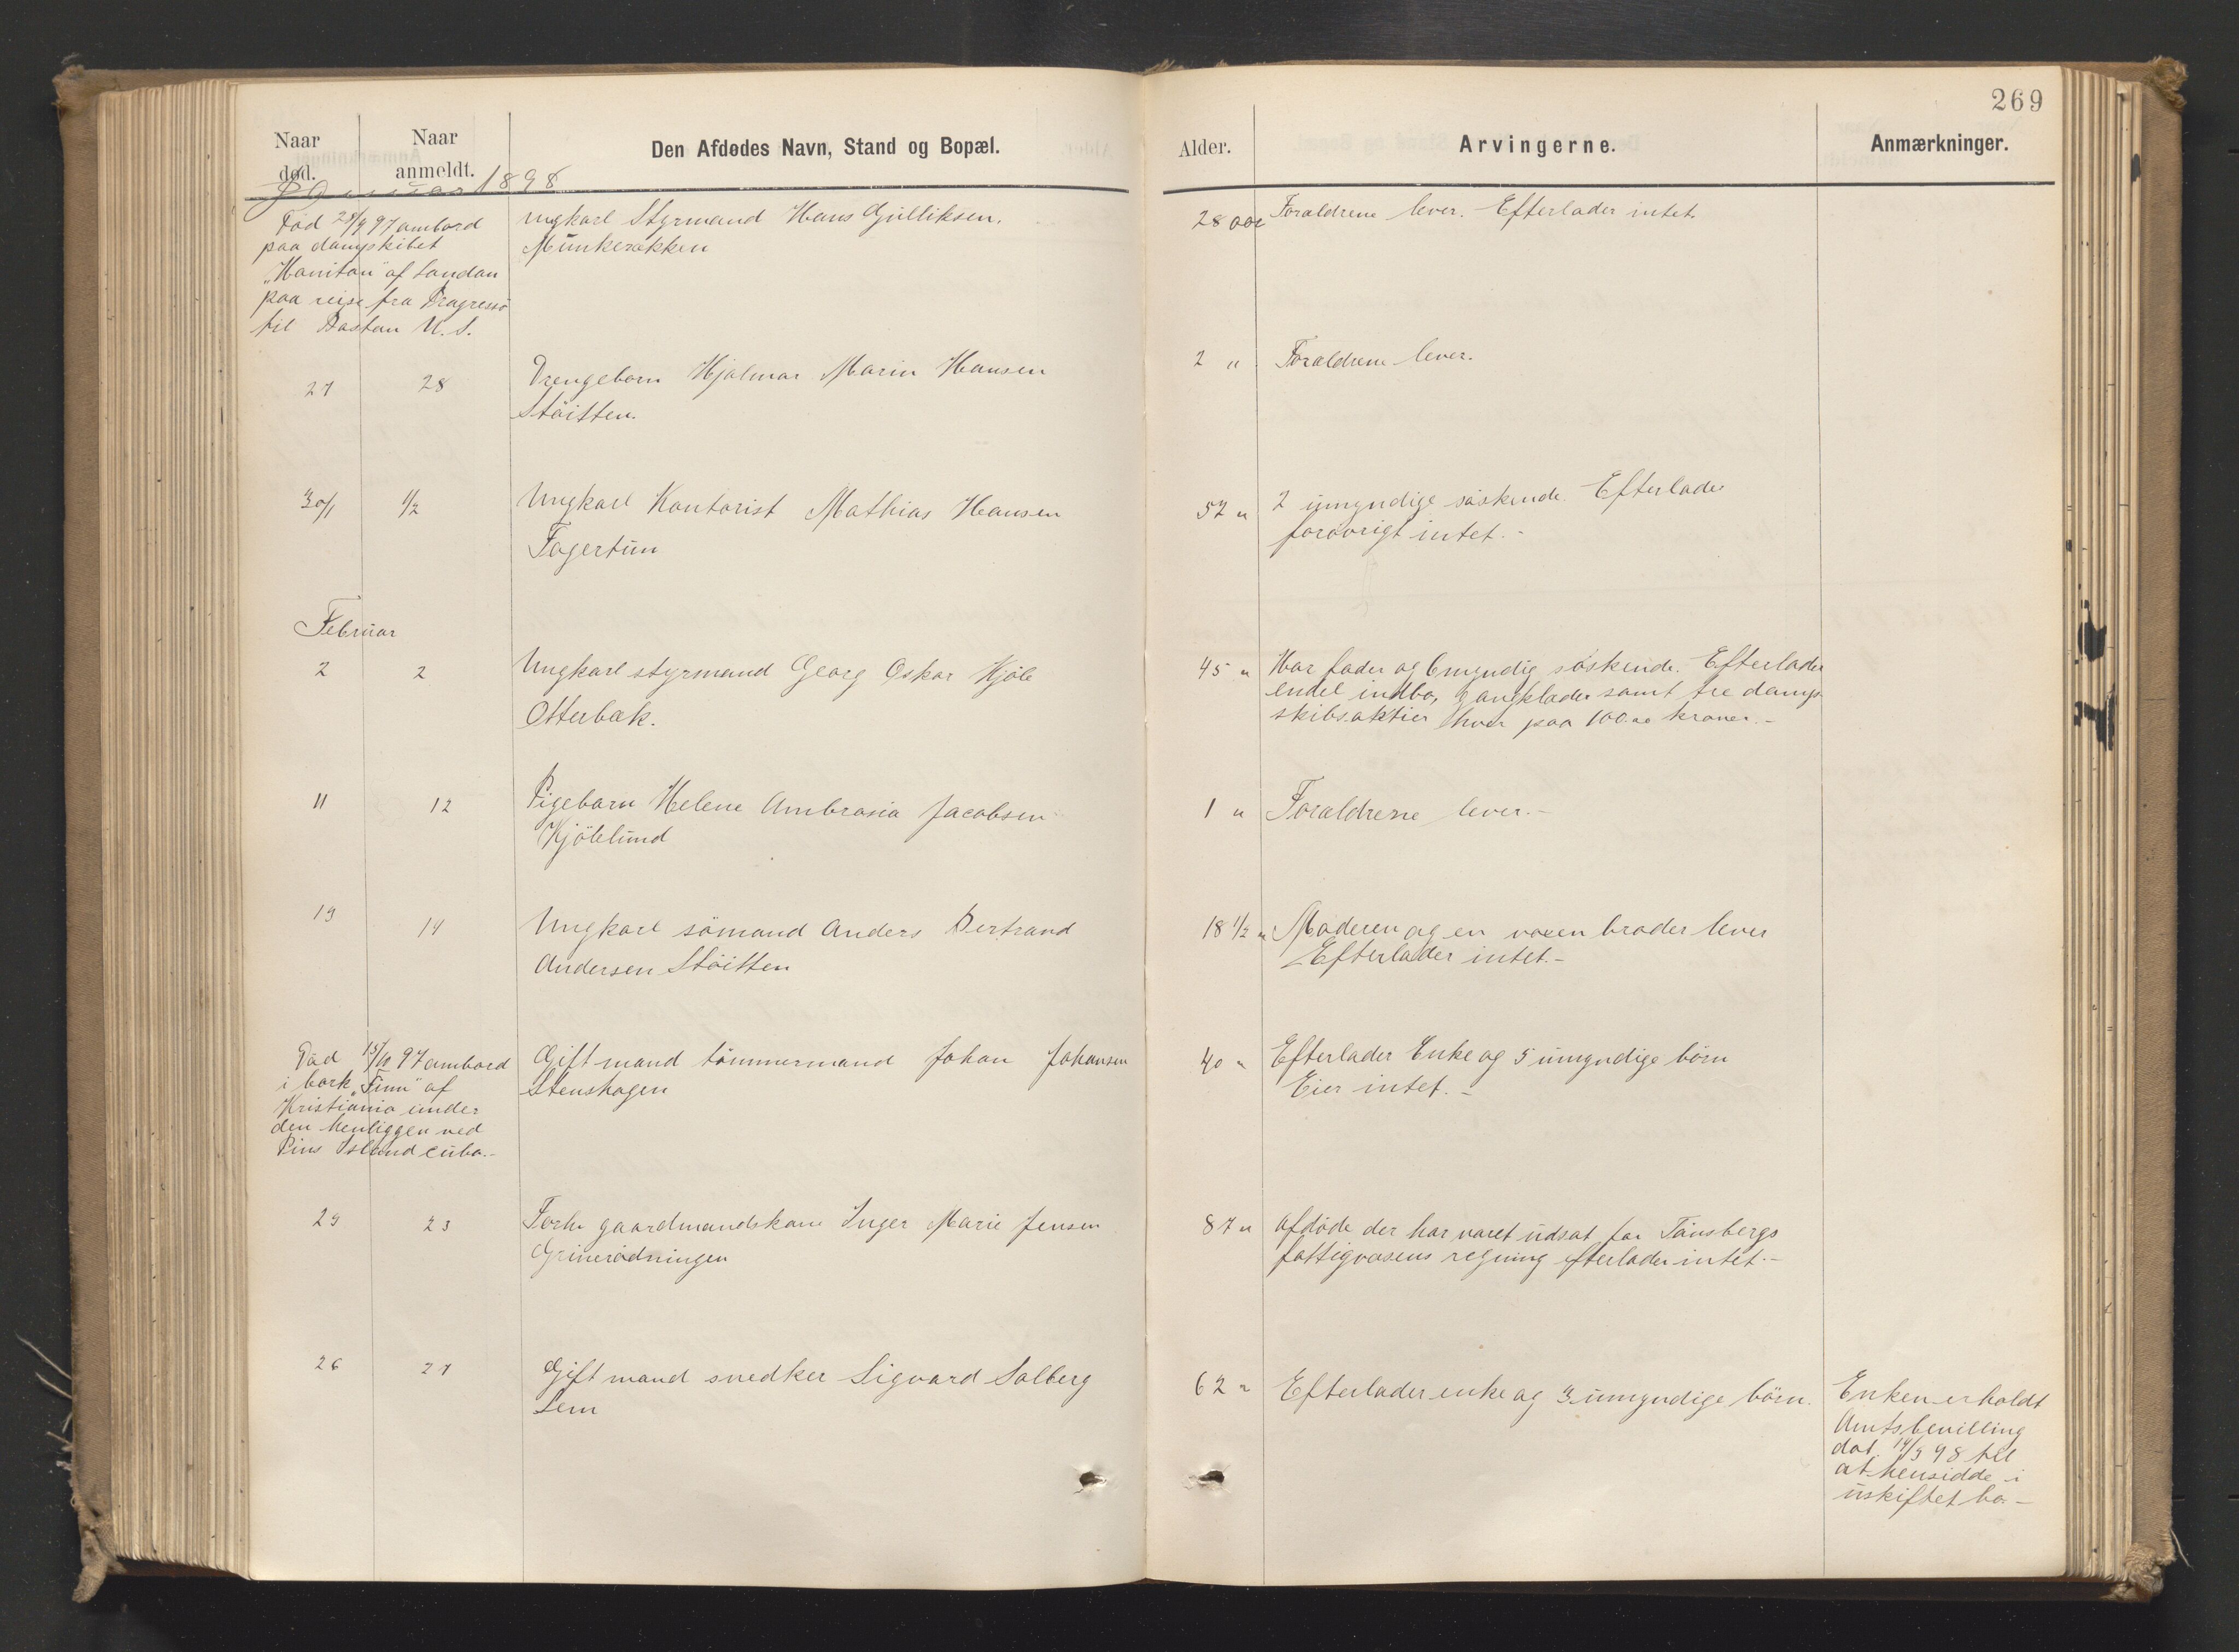 269
Naar død.
Naar anmeldt.
Den Afdødes Navn, Stand og Bopæl.
Alder.
Arvingerne.
Anmærkninger.
Januar 1898
Död 28/9 97 ombord
paa dampskibet
"Honiton" af London
paa reise fra Progresso
til Boston U. S.
Ungkarl Styrmand Hans Gulliksen.
Munkerækken
28 aar
Forældrene lever. Efterlader intet.
27
28
Drengebarn Hjalmar Marin Hansen
Stöitten.
2 "
Forældrene lever.
30/1
1/2
Ungkarl Kontorist Mathias Hansen
Fagertun
52 "
2 umyndige söskende. Efterlader
forövrigt intet.-
Februar
2
2
Ungkarl styrmand Georg Oskar Hjöle
Otterbæk.
45 "
Har fader og 6 myndig söskende. Efterlader
endel indbo, gangklæder samt tre damp-
skibsaktier hver paa 100.00 kroner.-
11
12
Pigebarn Helene Ambrosia Jacobsen
Kjölelund
1 "
Forældrene lever.-
13
14
Ungkarl sömand Anders Bertrand
Andersen Stöitten
18 1/2 "
Moderen og en voxen broder lever
Efterlader intet.-
Död 15/12 97 ombord
i bark "Finn" af
Kristiania under
den henliggen ved
Pine Island Cuba.-
Gift mand tömmermand Johan Johansen
Stenshagen
40 "
Efterlader Enke og 5 umyndige börn
Eier intet.-
23
23
Forh. gaardmandskone Inger Marie Jensen
Grinerödningen
87 "
Afdöde der har været udsat for Tönsbergs
fattigvæsens regning efterlader intet.-
26
27
Gift mand snedker Sigvard Solberg
Sem
62 "
Efterlader enke og 3 umyndige börn.
Enken erholdt
Amtsbevilling
dat. 14/3 98 til
at hensidde i
uskiftet bo.-